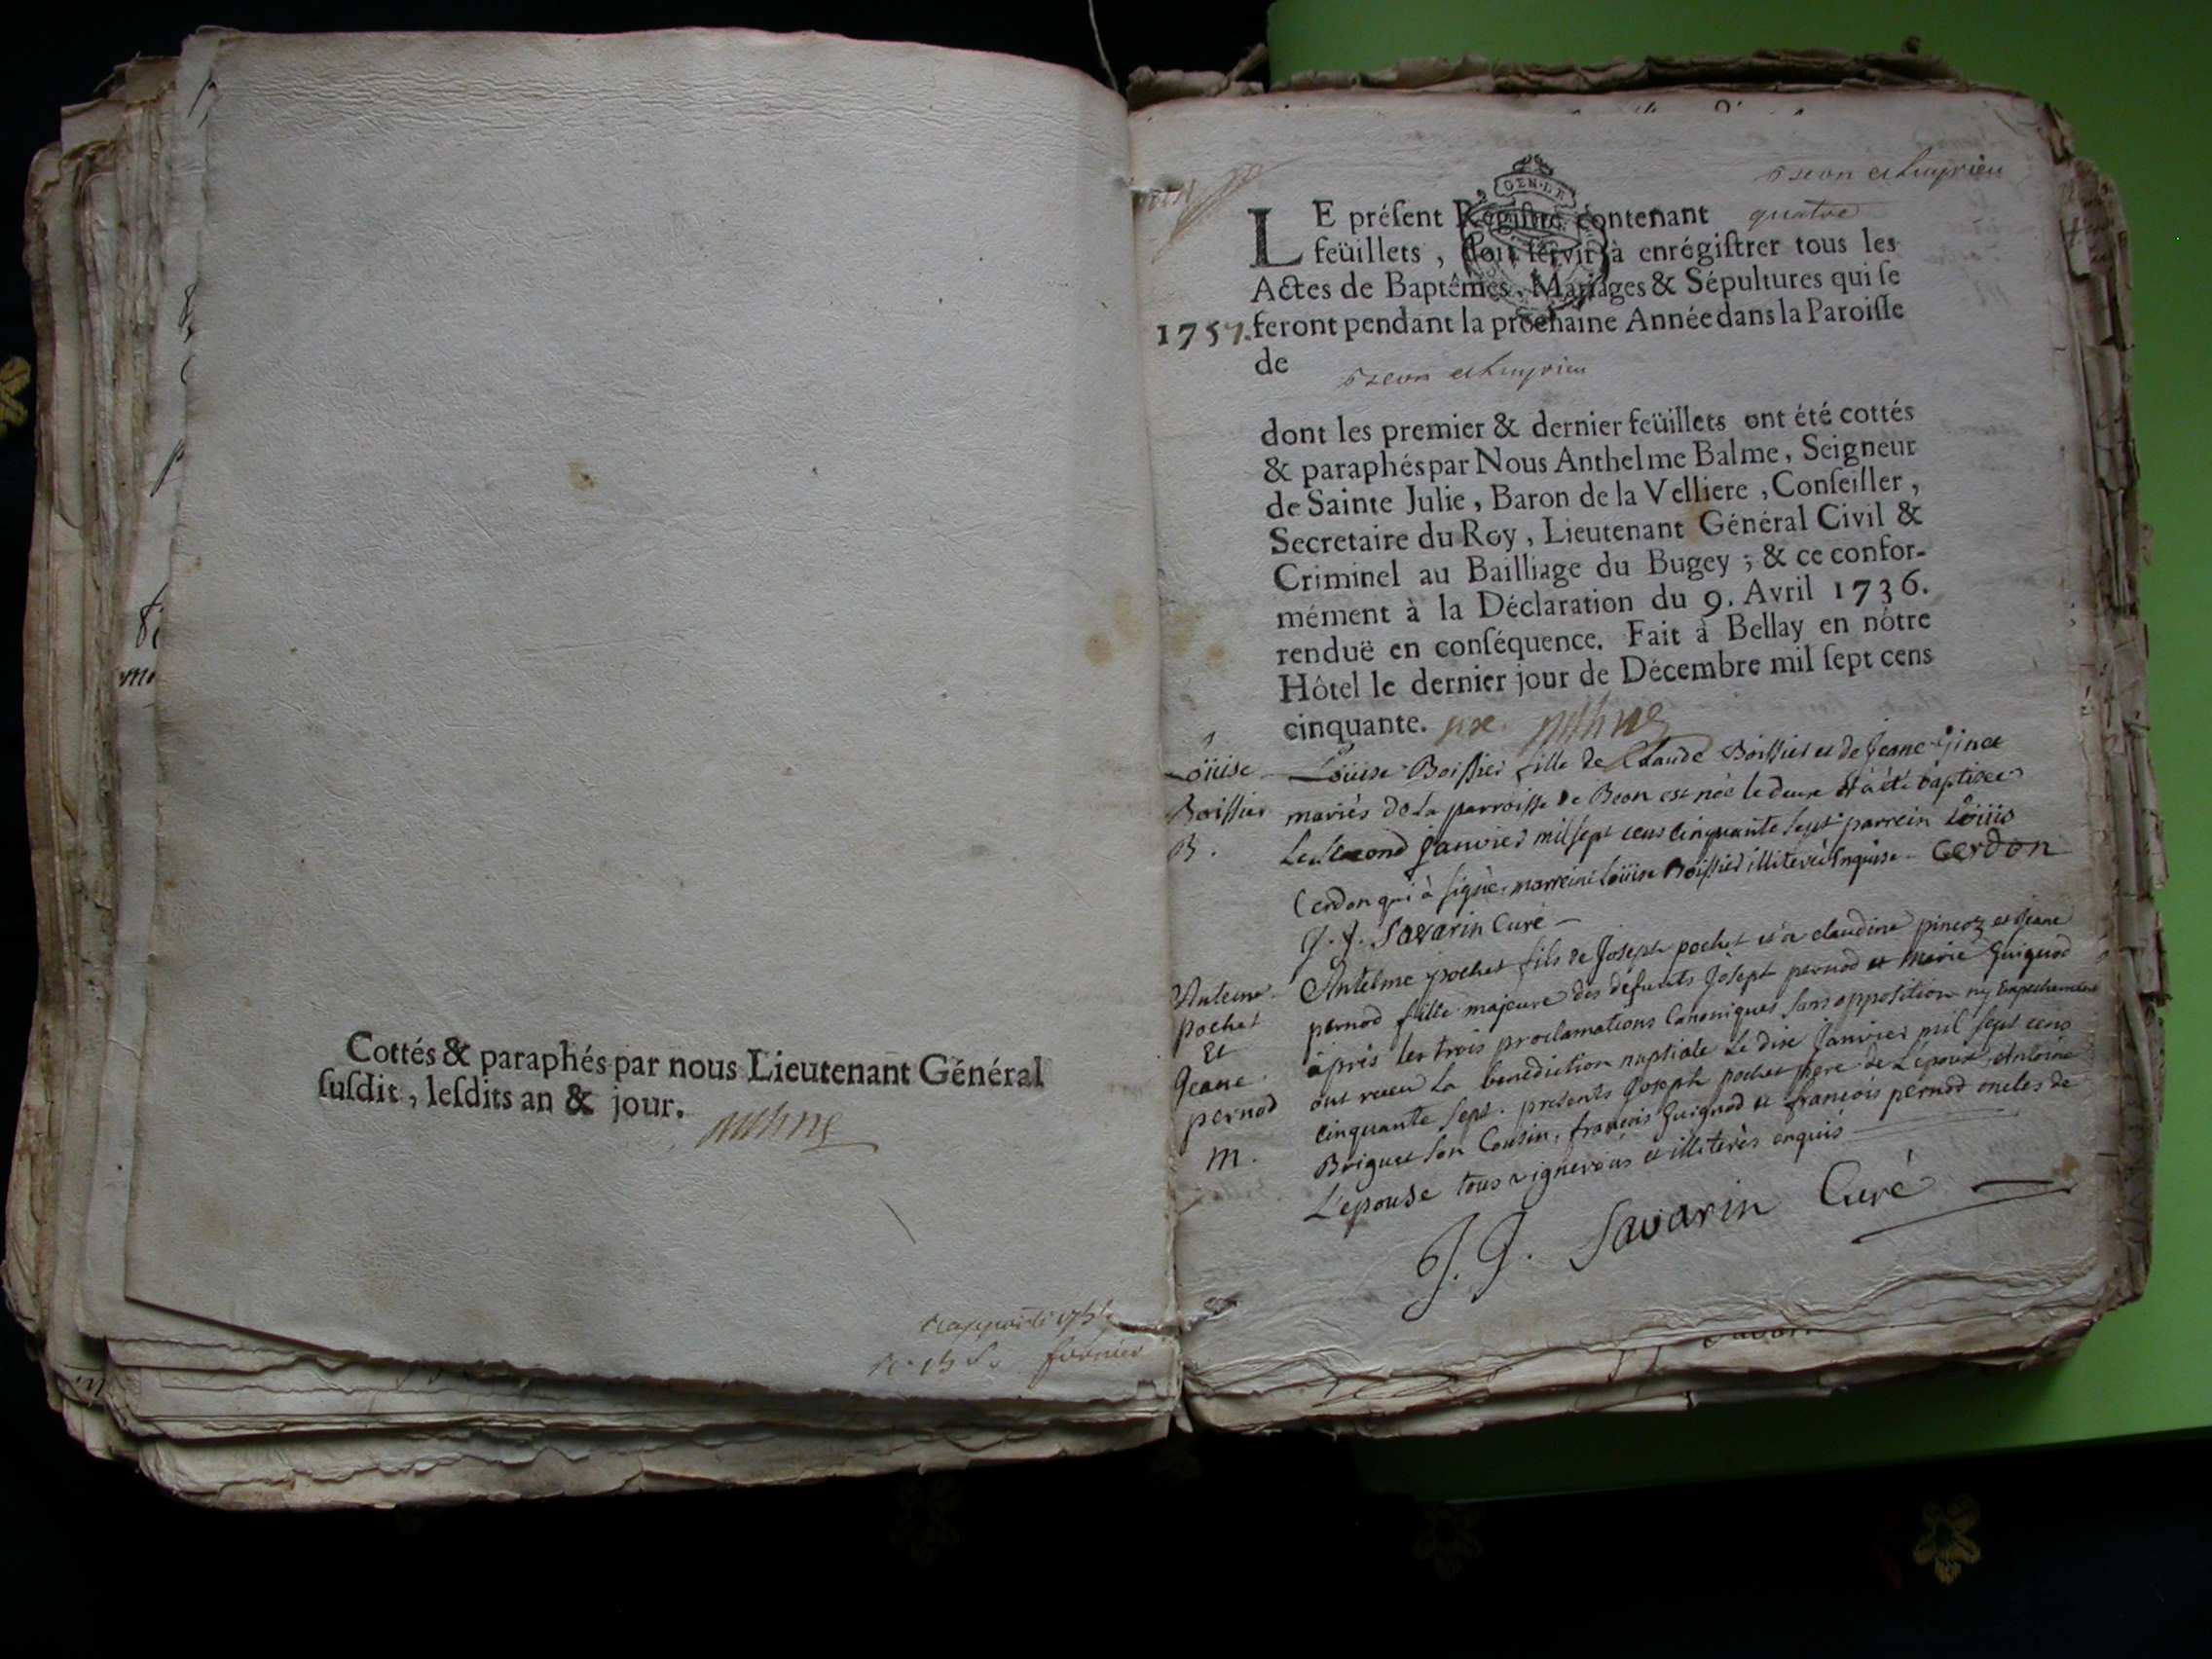 Cottés & paraphés par nous Lieutenant Général
suſdit, leſdits an & jour.
GEN·DE
LE préſent Regiſtre contenant quatre
feüillets, doit ſervir à enrégiſtrer tous les
Actes de Baptêmes, Mariages & Sépultures qui ſe
1757. feront pendant la prochaine Année dans la Paroiſſe
de
dont les premier & dernier feüillets ont été cottés
& paraphés par Nous Anthelme Balme, Seigneur
de Sainte Julie, Baron de la Velliere, Conſeiller,
Secretaire du Roy, Lieutenant Général Civil &
Criminel au Bailliage du Bugey; & ce confor-
mément à la Déclaration du 9. Avril 1736.
renduë en conſéquence. Fait à Bellay en nôtre
Hôtel le dernier jour de Décembre mil ſept cens
cinquante. six.
Loüise
Boissier
B.
Loüise Boissier fille de Claude Boissier et de Jeane Ginet
mariés de la parroisse de Beon est née le deux et à été baptisee
Le second janvier mil sept cens cinquante sept parrein Loüis
Cerdon qui à signé, marreine Loüise Boissier illiterée enquise Cerdon
J. J. Savarin Curé
pochet
Et
Jeane
pernod
m.
Antelme pochet fils de Joseph pochet et de claudine et Jeane
pernod fille majeure des defunts Joseph pernod et marie Guignod
àprés les trois proclamations Canoniques sans opposition ny Empechement
ont receu La benediction nuptiale Le dix Janvier mil sept cens
cinquante sept. presents Joseph pochet pere de L'epoux Antoine
Briguet son Cousin, francois Guignod et francois pernod oncles de
L'epouse tous vignerons et illiterés enquis
J. J. Savarin Curé